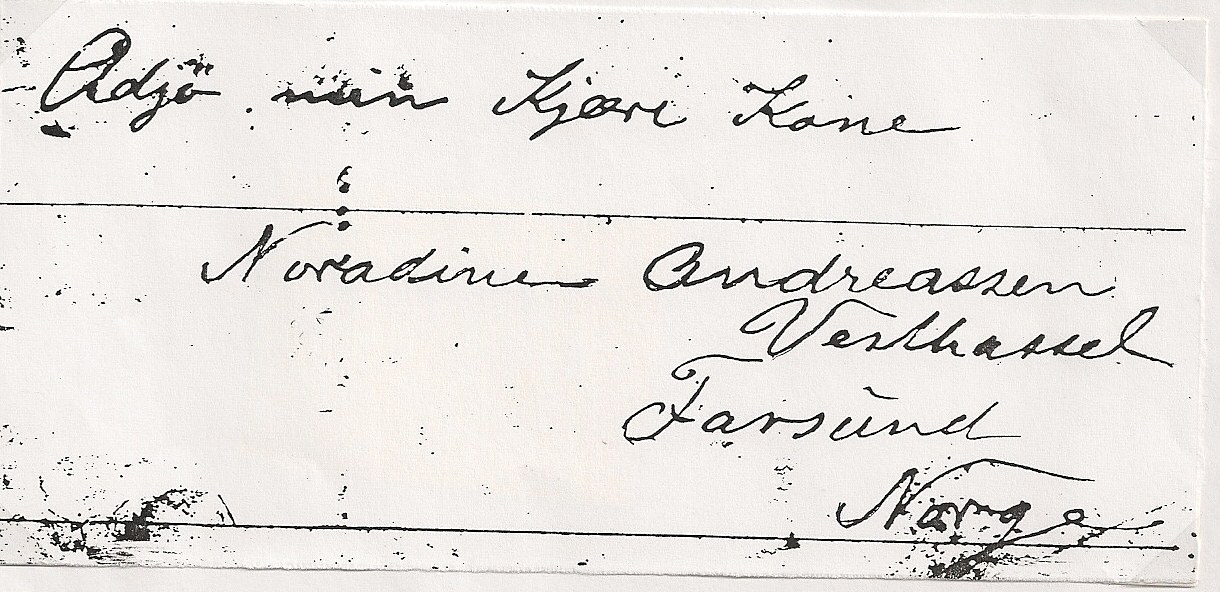 Adjö min Kjære Kone
Noradine Andreassen
Vesthassel
Farsund
Norge